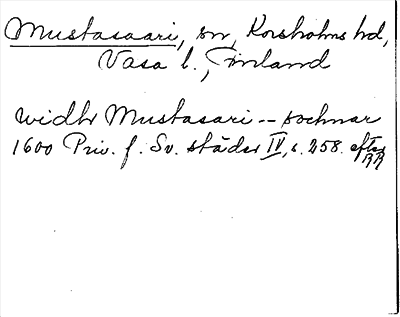 Mustasaari, sn, Korsholms hd,
Vasa l., Finland
widhr Mustasari -- sochnar
1600 Priv. f. Sv. städer IV, s. 258. efter
RR